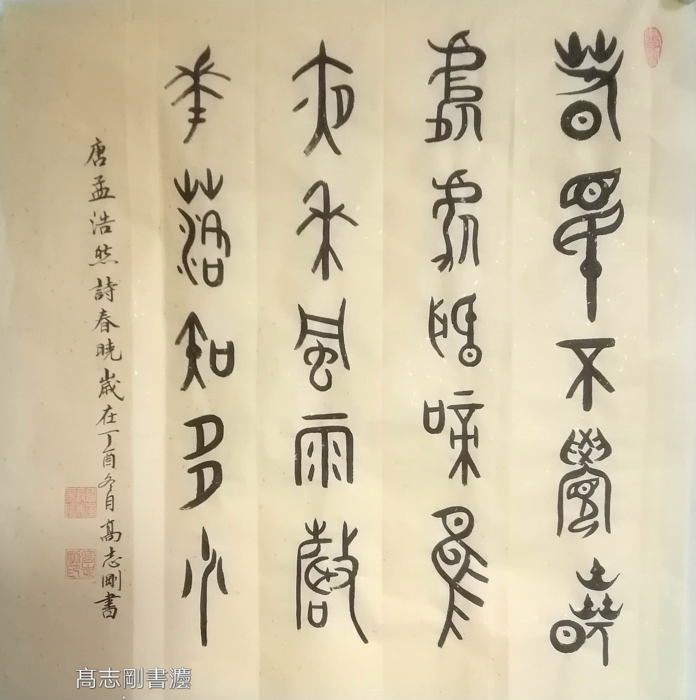 春眠不覺曉
處處聞啼鳥
夜來風雨聲
華落知多少
唐孟浩然詩春晓歲在丁酉冬月髙志剛書
髙志剛書灋